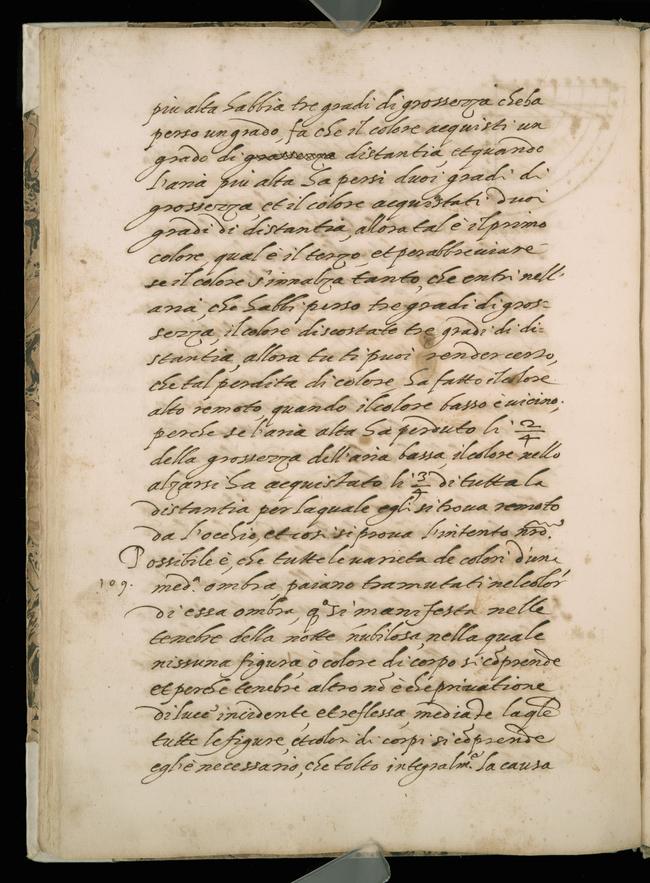 piu alta habbia tre gradi di grossezza che ha
perso un grado, fa che il colore acquisti un
grado di grossezza distantia, et quando
l'aria piu alta ha persi duoi gradi di
grossezza, et il colore acquistati duoi
gradi di distantia, allora tal è il primo
colore, qual è il terzo, et per abbreuiare
se il colore s'innalza tanto, che entri nell'
aria, che habbi perso tre gradi di gros=
sezza, il colore discostate tre gradi di di=
stantia, allora tu ti puoi render certo,
che tal perdita di colore ha fatto il colore
alto remoto, quando il colore basso è uicino;
perche se l'aria alta ha perduto li 2/4
della grossezza dell'aria bassa, il colore nello
alzarsi ha acquistato li 3/4 di tutta la
distantia per la quale egli si troua remoto
da l'occhio, et cosi si proua l'intento nrõ.
Possibile è, che tutte le uarieta de colori d'una
109. med.ª ombra, paiano tramutati nel color
di essa ombra, q.º si manifesta nelle
tenebre della notte nubilosa, nella quale
nissuna figura, ò colore di corpo si cõprende
et perche tenebre altro nõ è che priuatione
di luce incidente, et reflessa, mediãte la qle
tutte le figure, et color di corpi si cõprende
egl'è necessario, che tolto integralm.e la causa